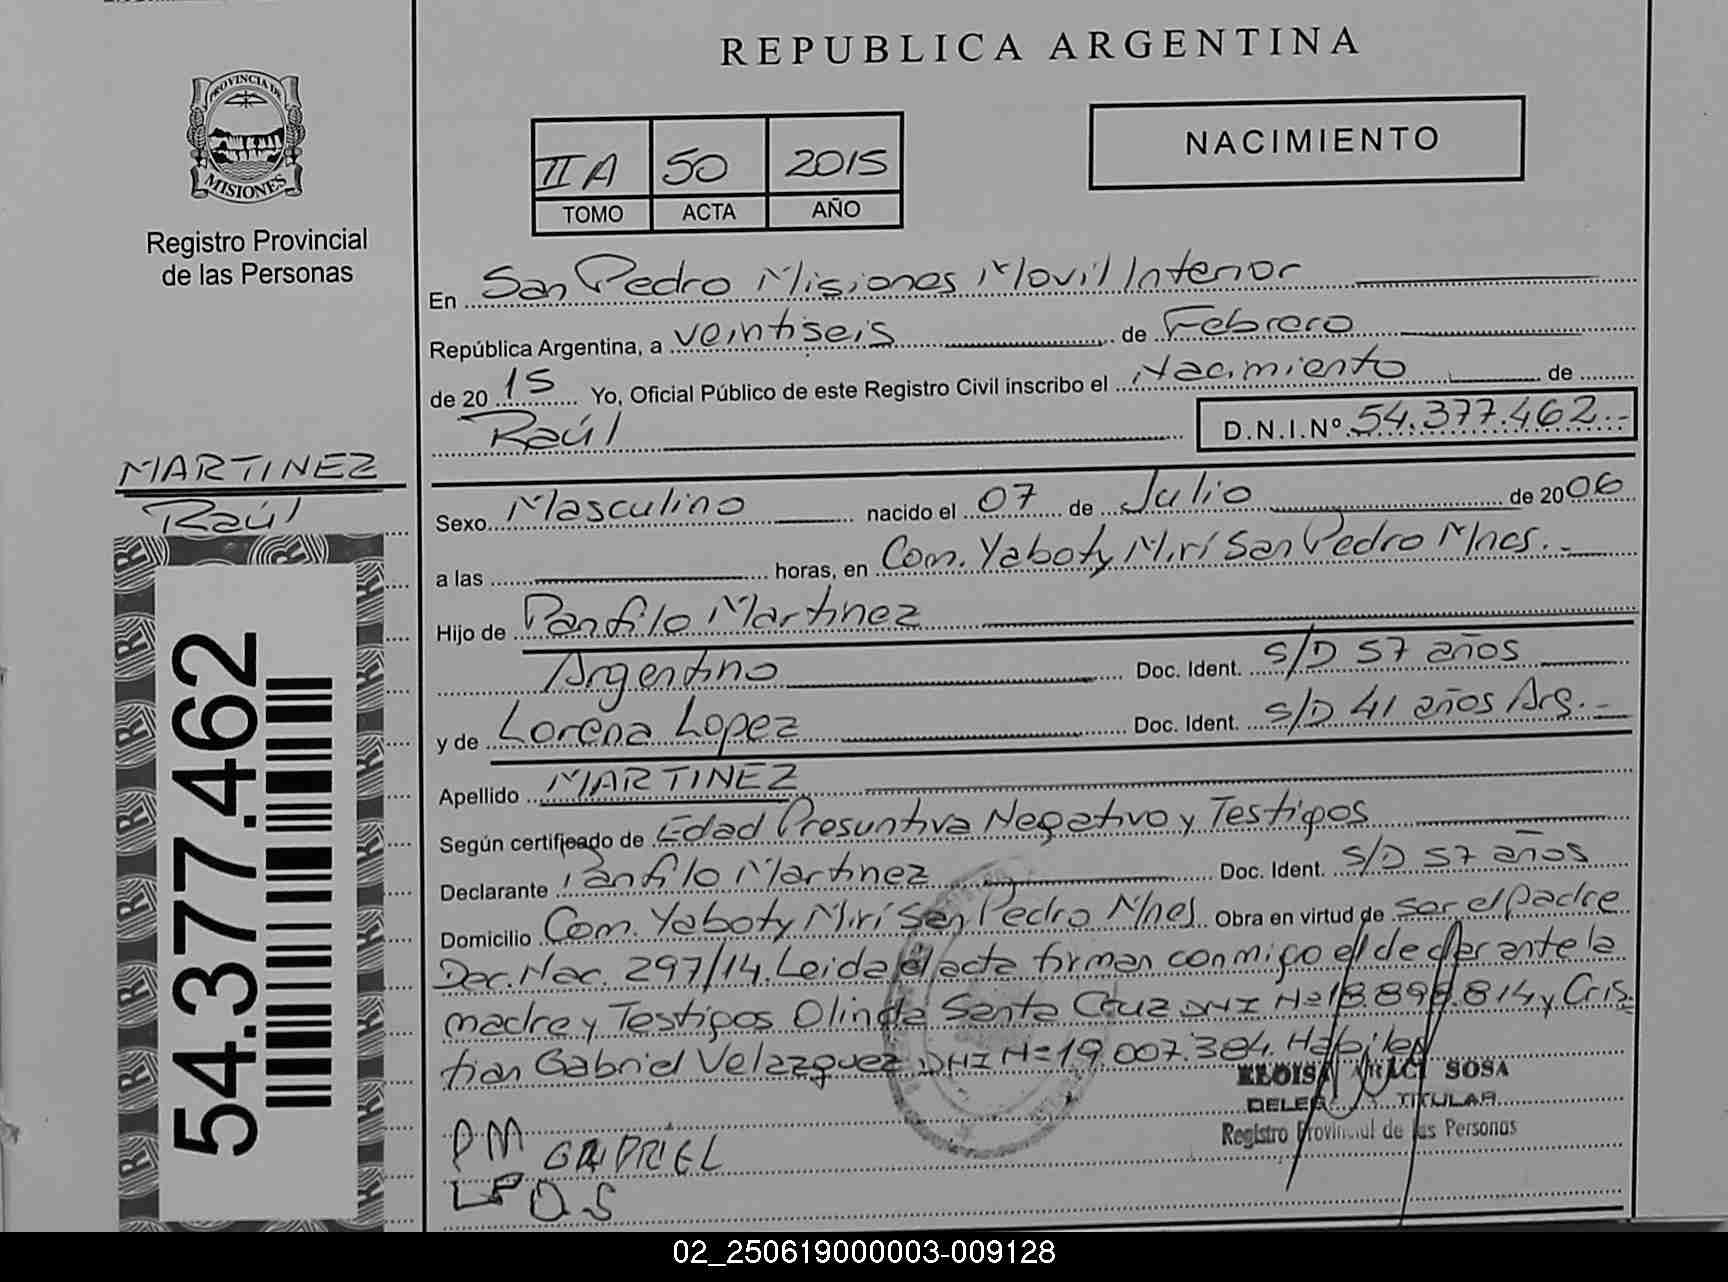 REPUBLICA ARGENTINA
PROVINCIA DE
MISIONES
Registro Provincial
de las Personas
II A 50 2015
TOMO ACTA AÑO
NACIMIENTO
En San Pedro Misiones Movil Interior
República Argentina, a veintiseis de Febrero
de 2015 Yo, Oficial Público de este Registro Civil inscribo el Nacimiento de
Raúl D.N.I.Nº 54.377.462.-
MARTINEZ
Raúl
54.377.462
Sexo Masculino nacido el 07 de Julio de 2006
a las horas, en Com. Yaboty Mirí San Pedro Mnes.-
Hijo de Panfilo Martinez
Argentino Doc. Ident. S/D 57 años
y de Lorena Lopez Doc. Ident. S/D 41 años Arg.-
Apellido MARTINEZ
Según certificado de Edad Presuntiva Negativo y Testigos
Declarante Panfilo Martinez Doc. Ident. S/D 57 años
Domicilio Com. Yaboty Mirí San Pedro Mnes. Obra en virtud de ser el padre
Dec. Nac. 297/14. Leida el acta firman conmigo el declarante la
madre y Testigos Olinda Santa Cruz DNI Nº 18.898.814 y Cris-
tian Gabriel Velazquez DNI Nº 19.007.384. Habiles
ELOISA SOSA
DELEG. TITULAR
Registro Provincial de las Personas
P.M GABRIEL
LP O.S
02_250619000003-009128